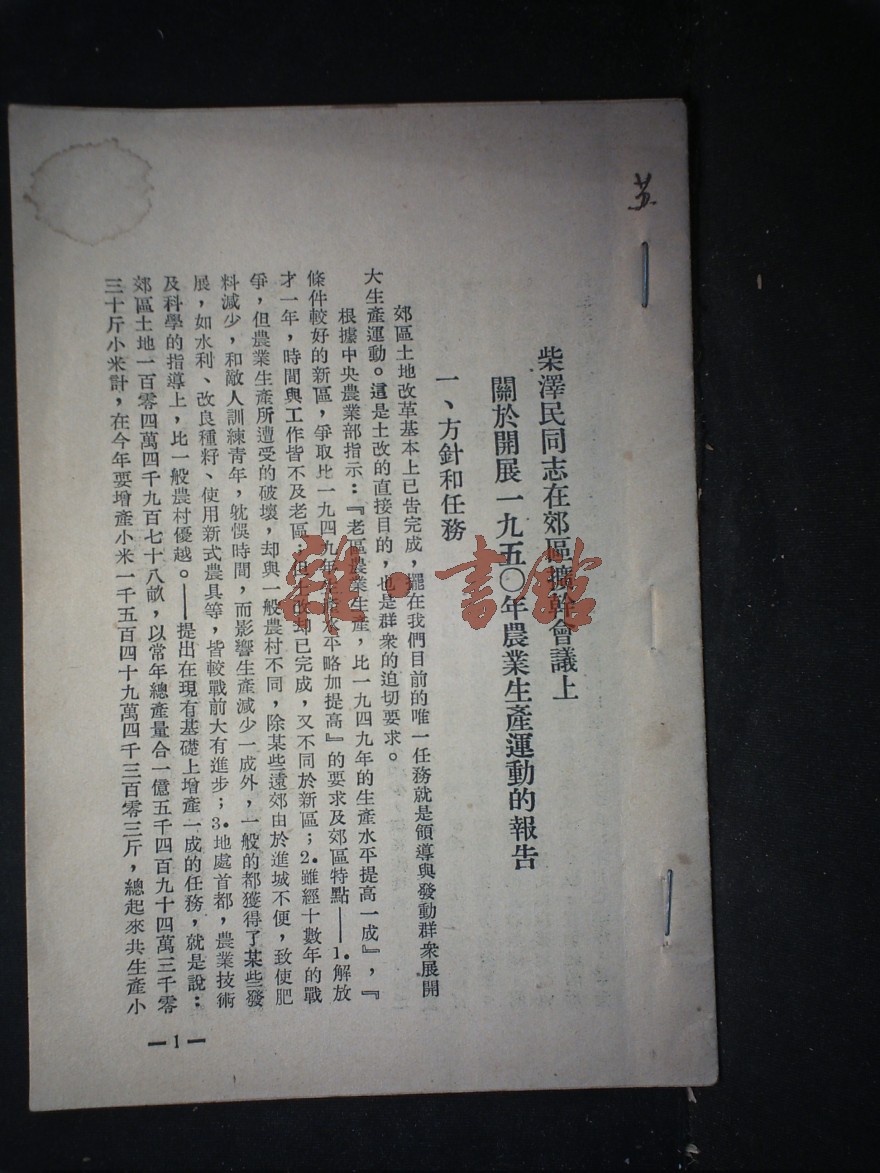 柴澤民同志在郊區擴幹會議上
關於開展一九五〇年農業生產運動的報告
一、方針和任務
郊區土地改革基本上已告完成，擺在我們目前的唯一任務就是領導與發動群衆展開
大生產運動。這是土改的直接目的，也是群衆的迫切要求。
根據中央農業部指示：『老區農業生產，比一九四九年的生產水平提高一成』，『
條件較好的新區，爭取比一九四九年生產水平略加提高』的要求及郊區特點——1.解放
才一年，時間與工作皆不及老區；但土改却已完成，又不同於新區；2.雖經十數年的戰
爭，但農業生產所遭受的破壞，却與一般農村不同，除某些遠郊由於進城不便，致使肥
料減少，和敵人訓練青年，躭悞時間，而影響生產減少一成外，一般的都獲得了某些發
展，如水利、改良種籽、使用新式農具等，皆較戰前大有進步；3.地處首都，農業技術
及科學的指導上，比一般農村優越。——提出在現有基礎上增產一成的任務，就是說：
郊區土地一百零四萬四千九百七十八畝，以常年總產量合一億五千四百九十四萬三千零
三十斤小米計，在今年要增產小米一千五百四十九萬四千三百零三斤，總起來共生產小
—1—
雜·書館